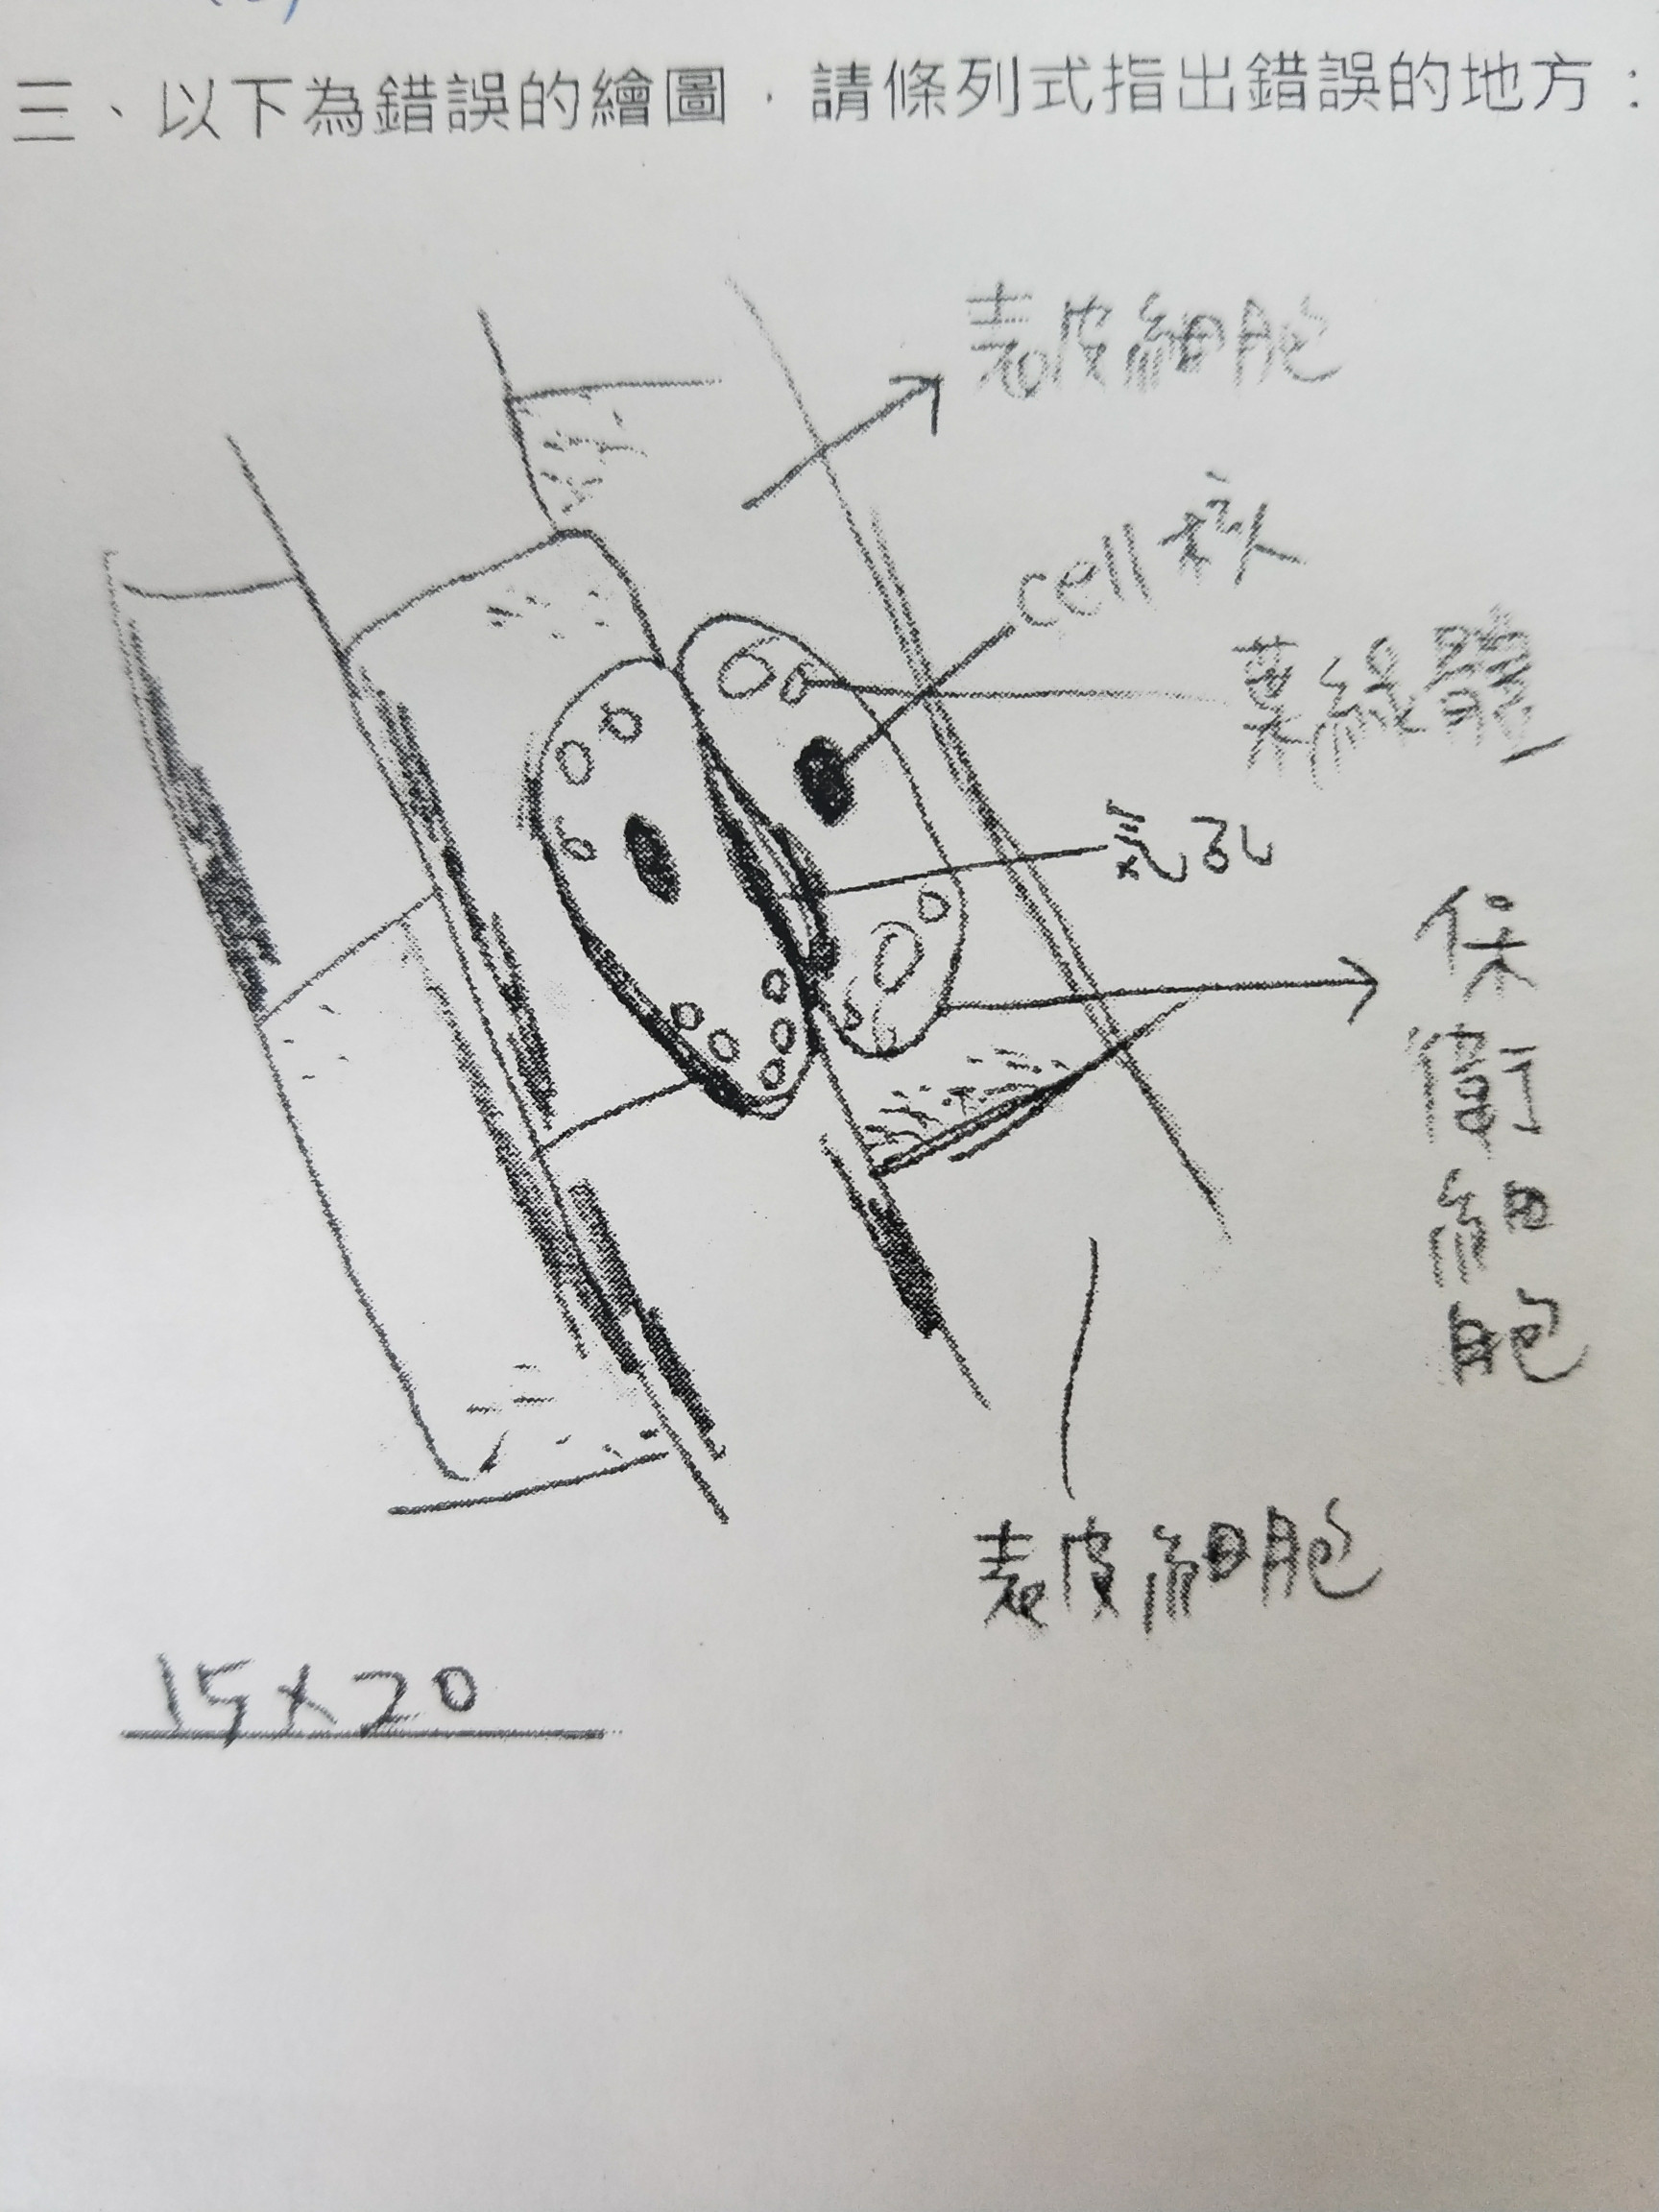 三、以下為錯誤的繪圖，請條列式指出錯誤的地方：
表皮細胞
cell核
葉綠體
氣孔
保
衛
細
胞
表皮細胞
15x20